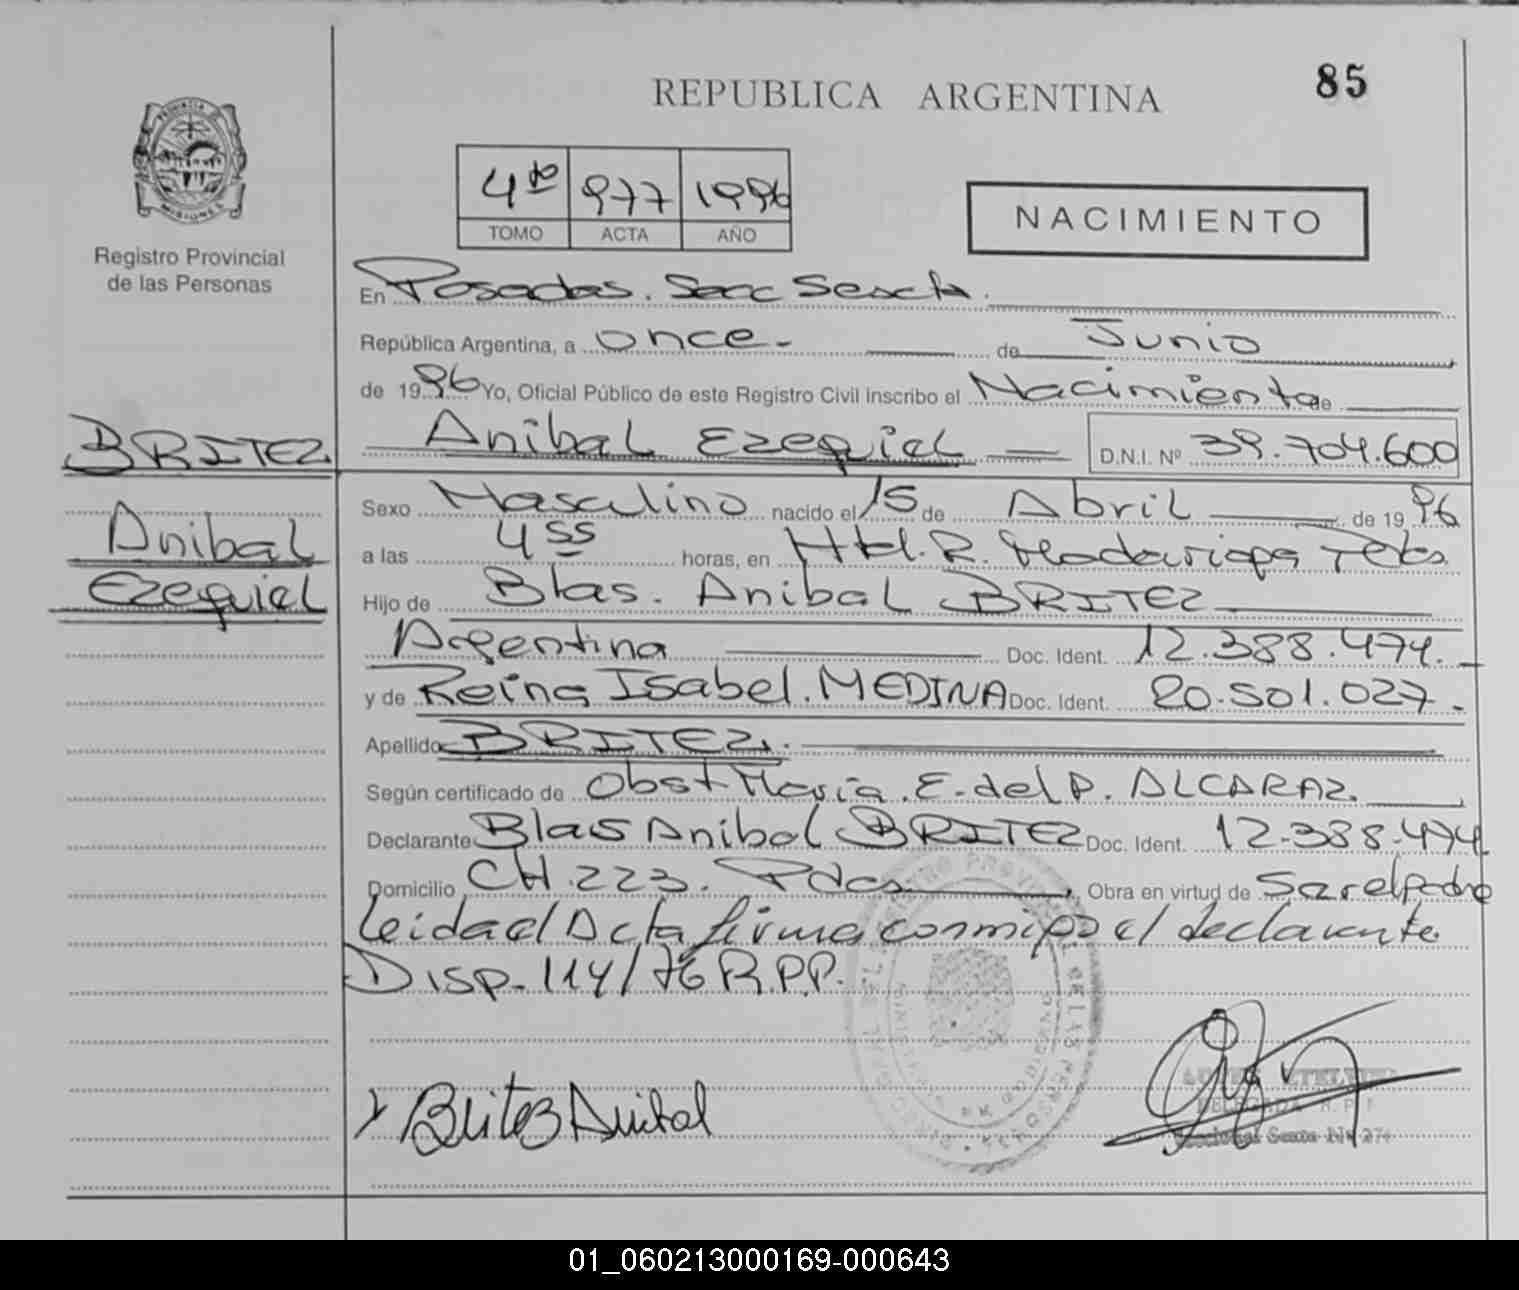 REPUBLICA ARGENTINA
85
PROVINCIA DE MISIONES
Registro Provincial
de las Personas
4to 977 1996
TOMO ACTA AÑO
NACIMIENTO
En Posadas. Secc Sexta.
República Argentina, a once.- de Junio
de 1996 Yo, Oficial Público de este Registro Civil inscribo el Nacimiento de
BRITEZ
Anibal Ezequiel D.N.I. Nº 39.704.600
Anibal
Ezequiel
Sexo Masculino nacido el 15 de Abril de 1996
a las 4 55 horas, en Htal. R. Madariaga
Hijo de Blas. Anibal BRITEZ
Argentina Doc. Ident. 12.388.474.
y de Reina Isabel. MEDINA Doc. Ident. 20.501.027.
Apellido BRITEZ.
Según certificado de Obst María. E. del P. ALCARAZ.
Declarante Blas Anibal BRITEZ Doc. Ident. 12.388.474
Domicilio CH. 223. Pdas. Obra en virtud de Ser el padre
Leida el Acta firma conmigo el declarante
Disp. 114/76 R.P.P.
Britez Anibal
DELEGADA R.P.P.
Seccional Sexta
01_060213000169-000643